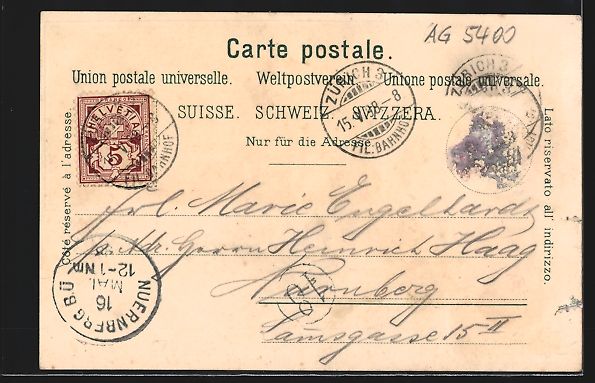 AG 5400
Carte postale.
Union postale universelle. Weltpostverein. Unione postale universale.
SUISSE. SCHWEIZ. SVIZZERA.
Nur für die Adresse.
Côté réservé à l'adresse.
Lato riservato all' indirizzo.
HELVETIA
5
ZÜRICH 3
15. V. 98 – 8
FIL. BAHNHOF
ZÜRICH 3
Frl. Marie Engelhardt
Adr. Herrn Heinrich Haag
Nürnberg
15 II
NUERNBERG BÜ
16
MAI
12–1 Nm